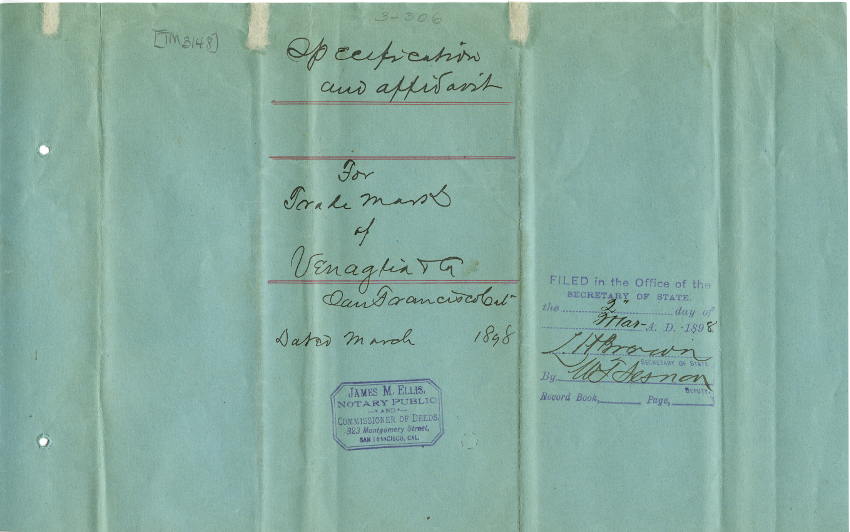 3-306
[TM 3148]
Specification
and affidavit
For
Trade Mark
of
Venaglia & Co
San Francisco Cal
Dated March 1898
JAMES M. ELLIS,
NOTARY PUBLIC
AND
COMMISSIONER OF DEEDS
323 Montgomery Street,
SAN FRANCISCO, CAL.
FILED in the Office of the
SECRETARY OF STATE,
the 2" day of
Mar A. D. 1898
L. H. Brown
SECRETARY OF STATE
By
DEPUTY.
Record Book, Page,